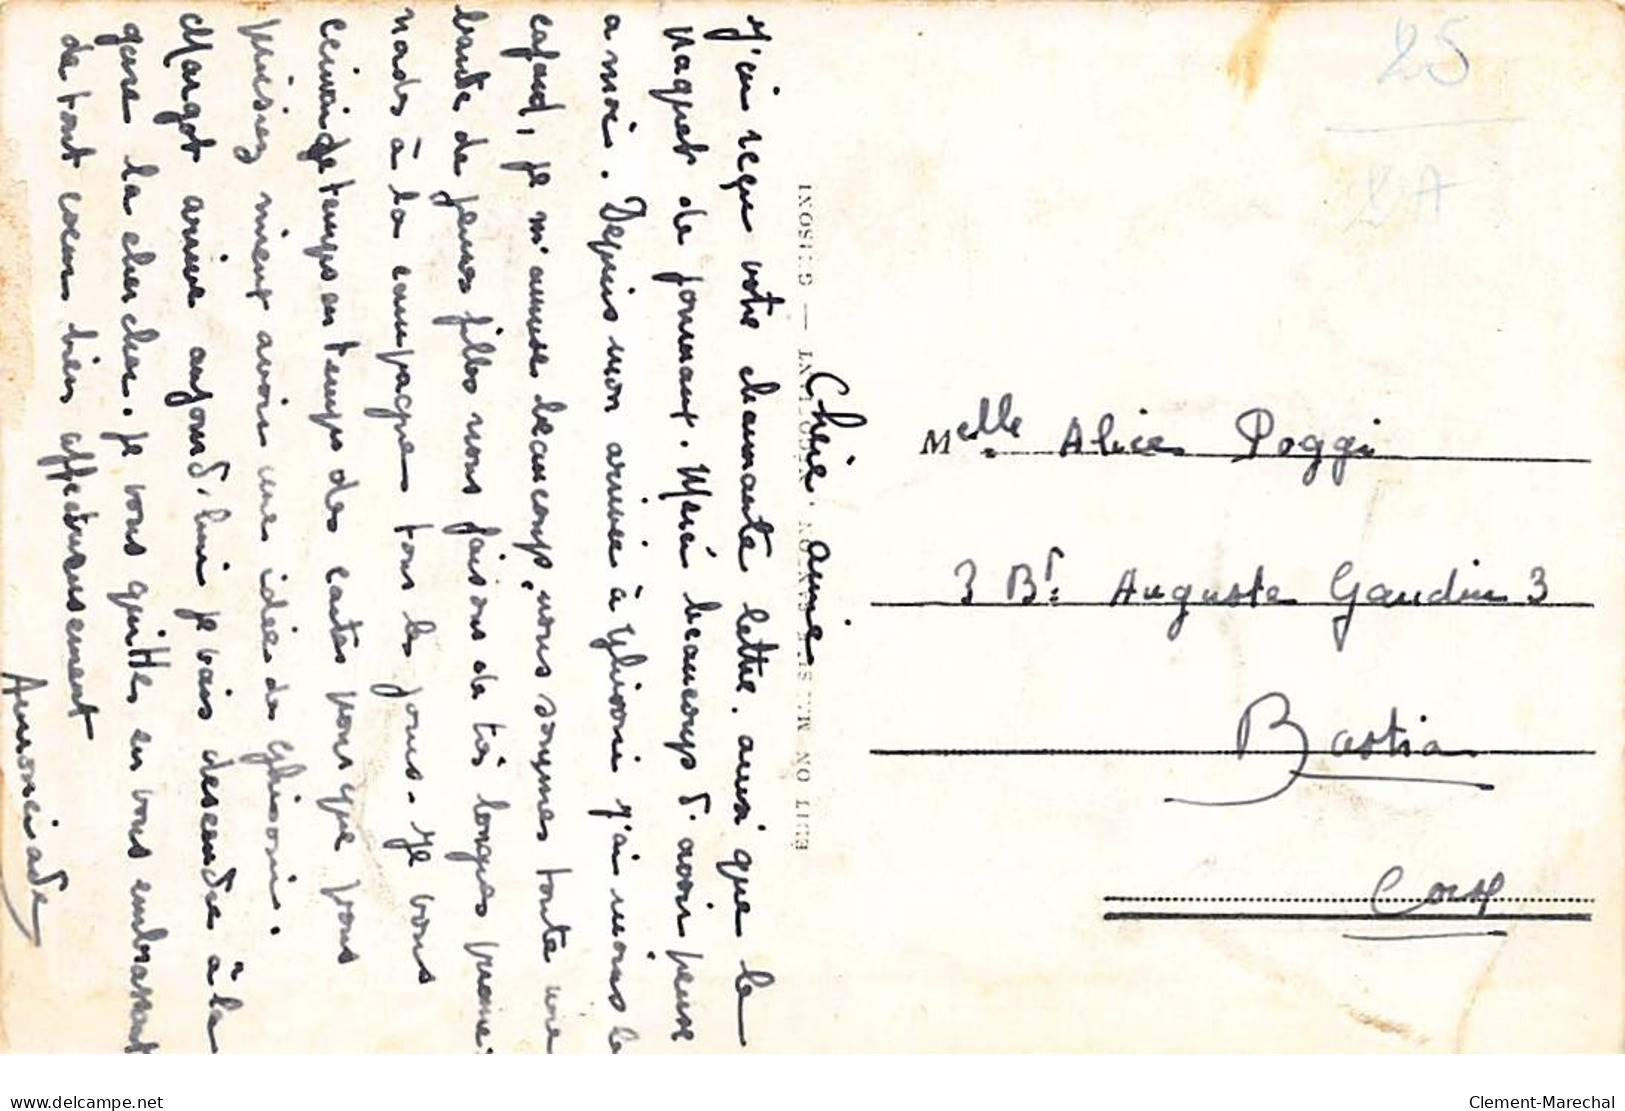 Chère amie
J'ai reçu votre charmante lettre. ainsi que le
paquet de journaux. Merci beaucoup d'avoir pensé
a moi. Depuis mon arrivée à Ghisoni j'ai moins le
cafard, je m'amuse beaucoup, nous sommes toute une
bande de jeunes filles nous faisons de très longues prome-
nades à la campagne tous les jours. Je vous
de temps en temps des cartes pour que vous
puissiez mieux avoir une idée de Ghisoni.
Margot arrive aujourd'hui je vais descendre à la
gare la chercher. Je vous quitte, en vous embrassant
de tout coeur bien affectueusement
Annonciade
EDITION
GHISONI
25
2A
Melle Alice Poggi
3 Bd: Auguste Gaudin 3
Bastia
Corse
delcampe.net
Clement-Marechal